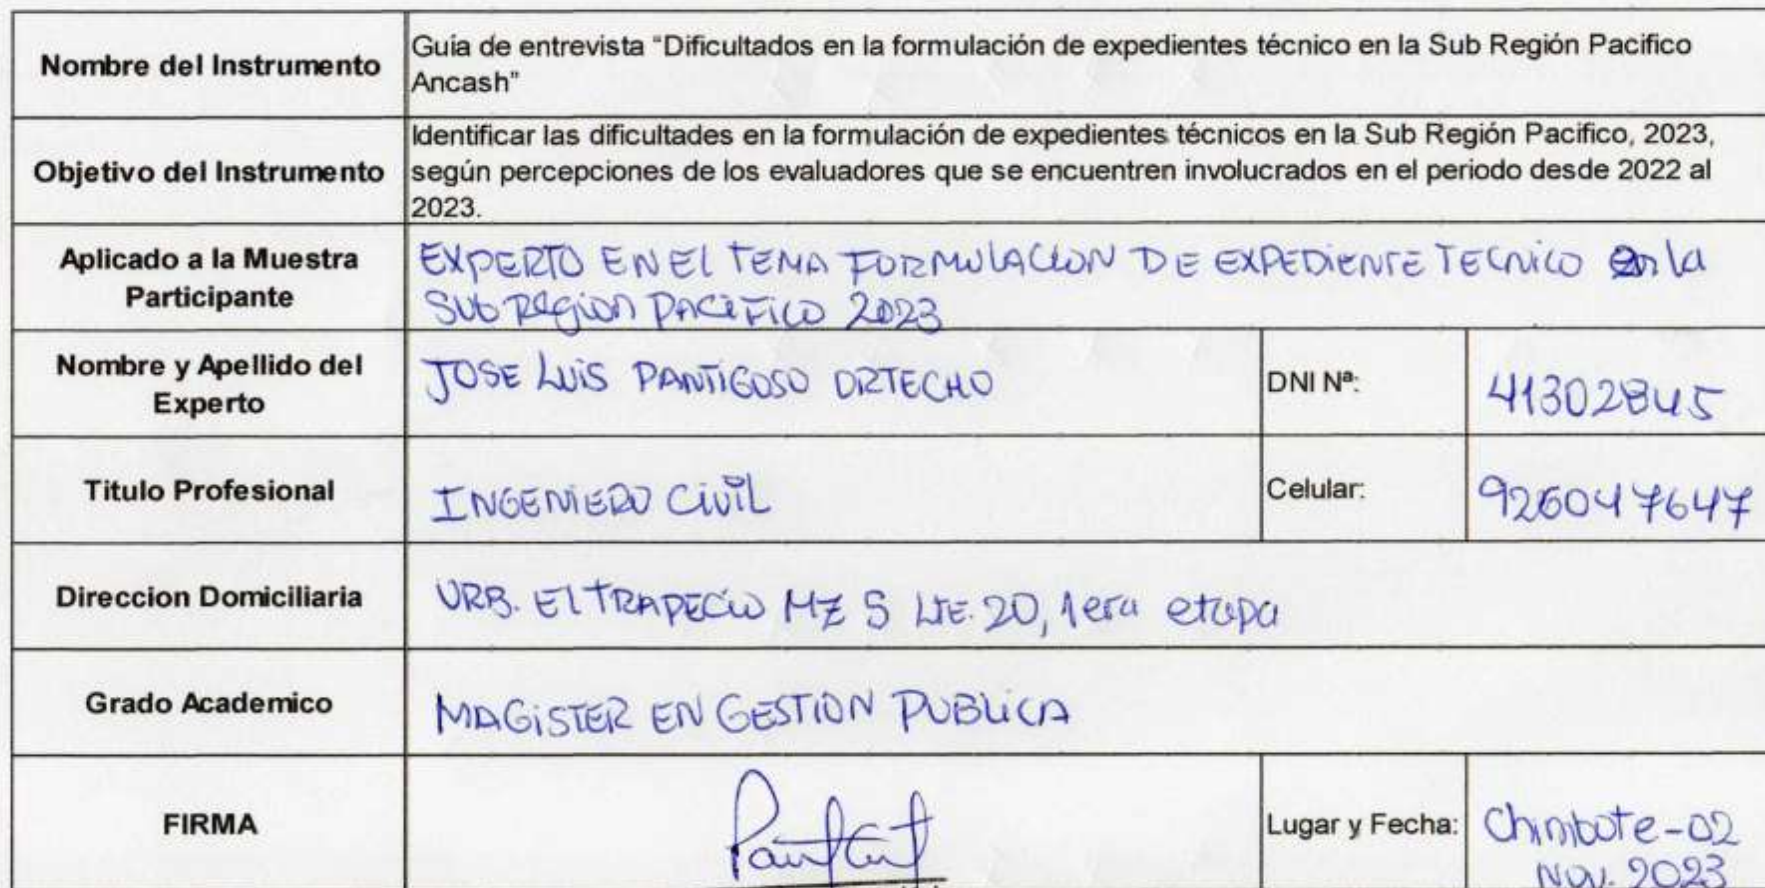 Nombre del Instrumento
Guia de entrevista “Dificultados en la formulación de expedientes técnico en la Sub Región Pacifico
Ancash”
Objetivo del Instrumento
Identificar las dificultades en la formulación de expedientes técnicos en la Sub Región Pacifico, 2023,
según percepciones de los evaluadores que se encuentren involucrados en el periodo desde 2022 al
2023.
Aplicado a la Muestra
Participante
EXPERTO EN El TEMA FORMULACION DE EXPEDIENTE TECNICO en la
SUb REgion PACIFICO 2023
Nombre y Apellido del
Experto
JOSE LUIS PANTIGOSO ORTECHO
DNI Nª:
41302845
Titulo Profesional
INGENIERO CIVIL
Celular:
926047647
Direccion Domiciliaria
URB. El TRAPECIO MZ S LTE. 20, 1era etapa
Grado Academico
MAGISTER EN GESTION PUBLICA
FIRMA
Lugar y Fecha:
Chimbote-02
NOV. 2023